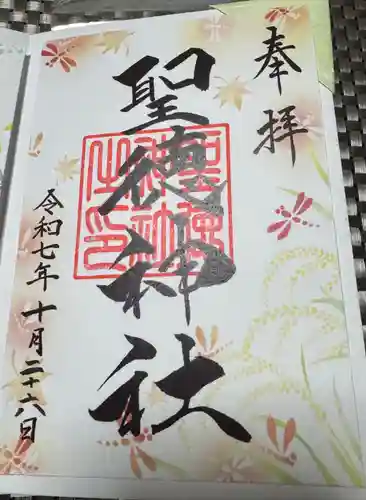 奉拝
聖徳神社
令和七年十月二十六日